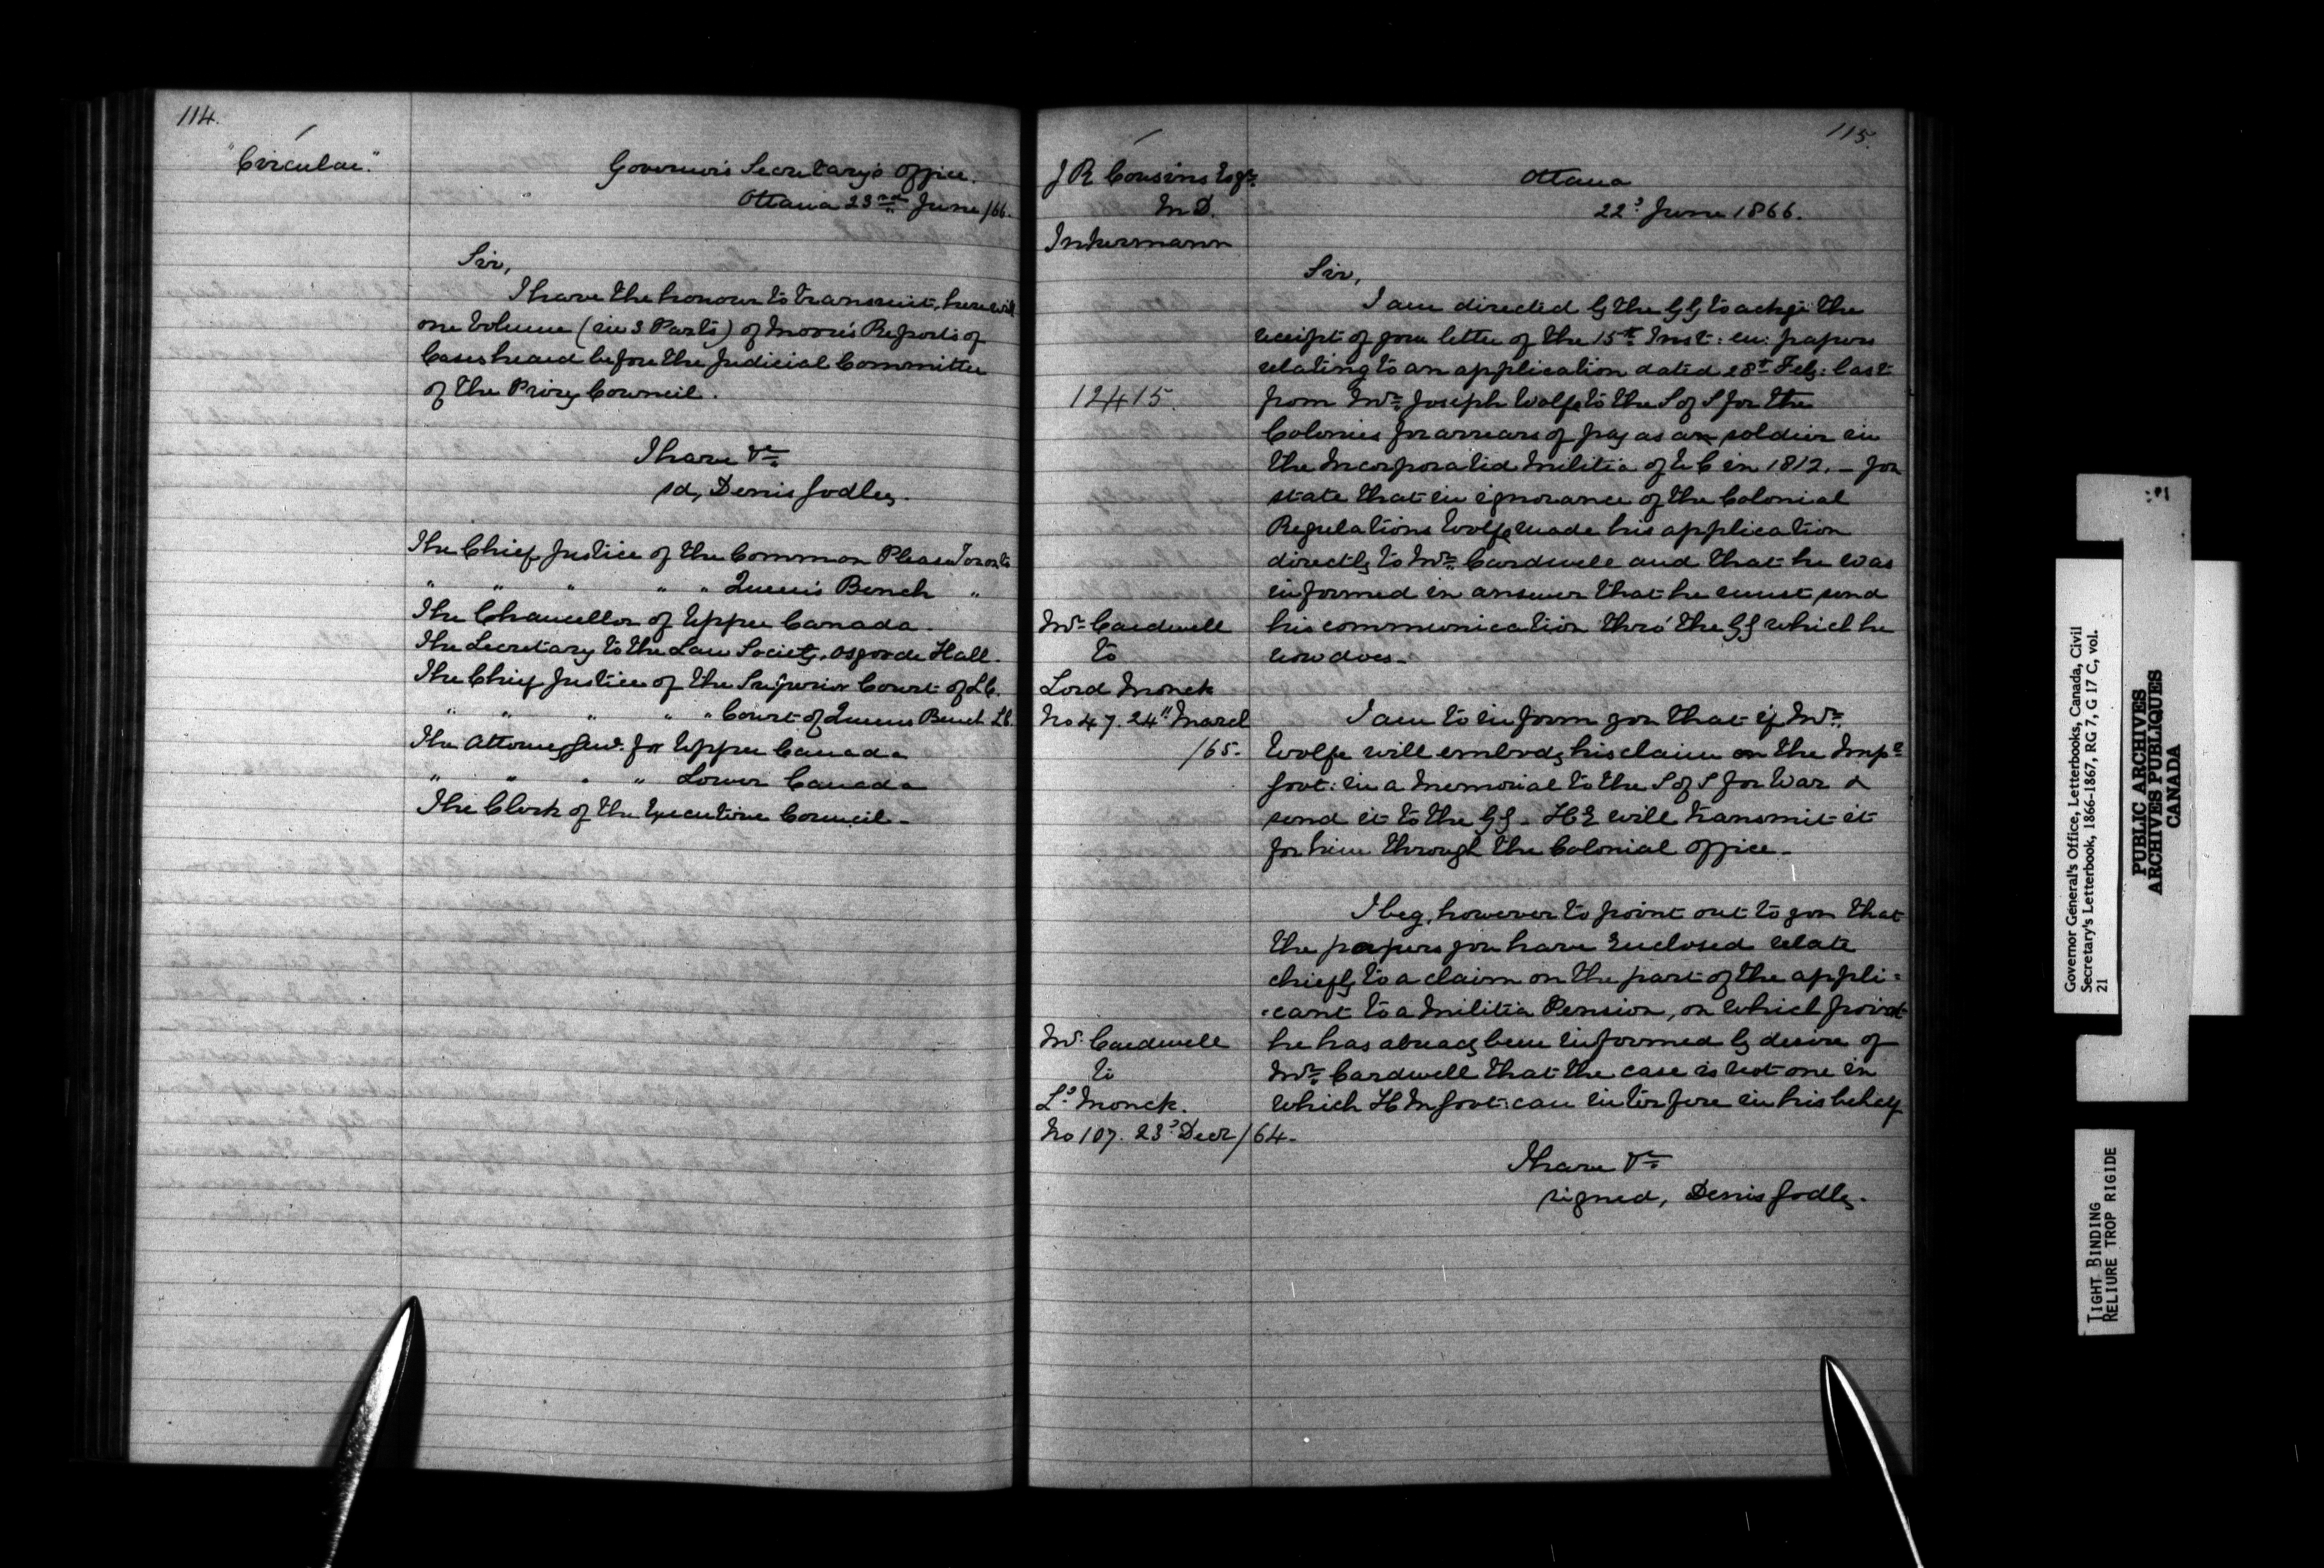 114.
"Circular."
Governor's Secretary's Office.
Ottawa 23rd June /66.
Sir,
I have the honour to transmit, herewith
one Volume (in 3 Parts) of Moore's Reports of
Cases heard before the Judicial Committee
of the Privy Council.
I have &c
sd, Denis Godley.
The Chief Justice of the Common Pleas Toronto
" " " " " Queen's Bench "
The Chancellor of Upper Canada.
The Secretary to the Law Society, Osgoode Hall.
The Chief Justice of the Superior Court of LC.
" " " " " Court of Queens Bench LC.
The Attorney Genl. for Upper Canada
" " " " Lower Canada
The Clerk of the Executive Council.
115.
J R Cousins Esqre.
M D.
Inkermann
Ottawa
22d June 1866.
Sir,
I am directed by the GG to ackge the
receipt of your letter of the 15th Inst: en: papers
relating to an application dated 28th Feby: last
12415.
from Mr. Joseph Wolfe to the S of S for the
Colonies for arrears of pay as a soldier in
the Incorporated Militia of U C in 1812. - You
state that in ignorance of the Colonial
Regulations Wolfe made his application
directly to Mr. Cardwell and that he was
informed in answer that he must send
Mr Cardwell
to
Lord Monck
No 47. 24" March
/65.
his communication thro' the GG which he
now does.
I am to inform you that if Mr.
Wolfe will embody his claim on the Impl
Govt: in a Memorial to the S of S for War &
send it to the GG - HE will transmit it
for him through the Colonial Office.
I beg, however to point out to you that
the papers you have Enclosed relate
chiefly to a claim on the part of the appli=
=cant to a Militia Pension, on which point
Mr. Cardwell
to
Ld. Monck.
No 107. 23d Decr /64.
he has already been informed by desire of
Mr. Cardwell that the case is not one in
which H M Govt: can interfere in his behalf
I have &c
signed, Denis Godley.
Governor General's Office, Letterbooks, Canada, Civil
Secretary's Letterbook, 1866-1867, RG 7, G 17 C, vol.
21
PUBLIC ARCHIVES
ARCHIVES PUBLIQUES
CANADA
TIGHT BINDING
RELIURE TROP RIGIDE